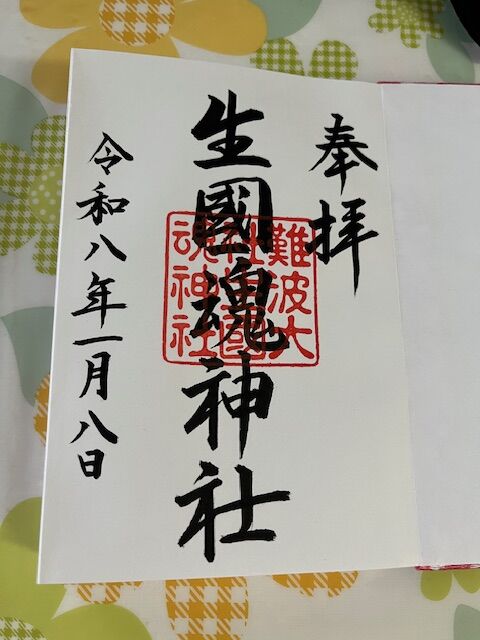 奉拝
生國魂神社
難波大社生國魂神社
令和八年一月八日